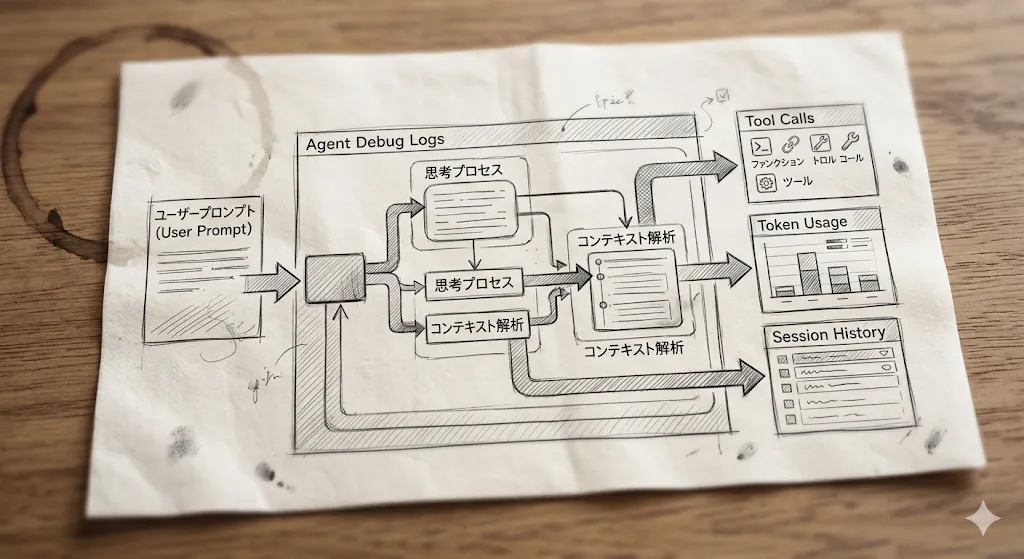 Agent Debug Logs
ユーザープロンプト
(User Prompt)
思考プロセス
思考プロセス
コンテキスト解析
コンテキスト解析
コンテキスト解析
Tool Calls
ファンクション トロル コール
ツール
Token Usage
Session History